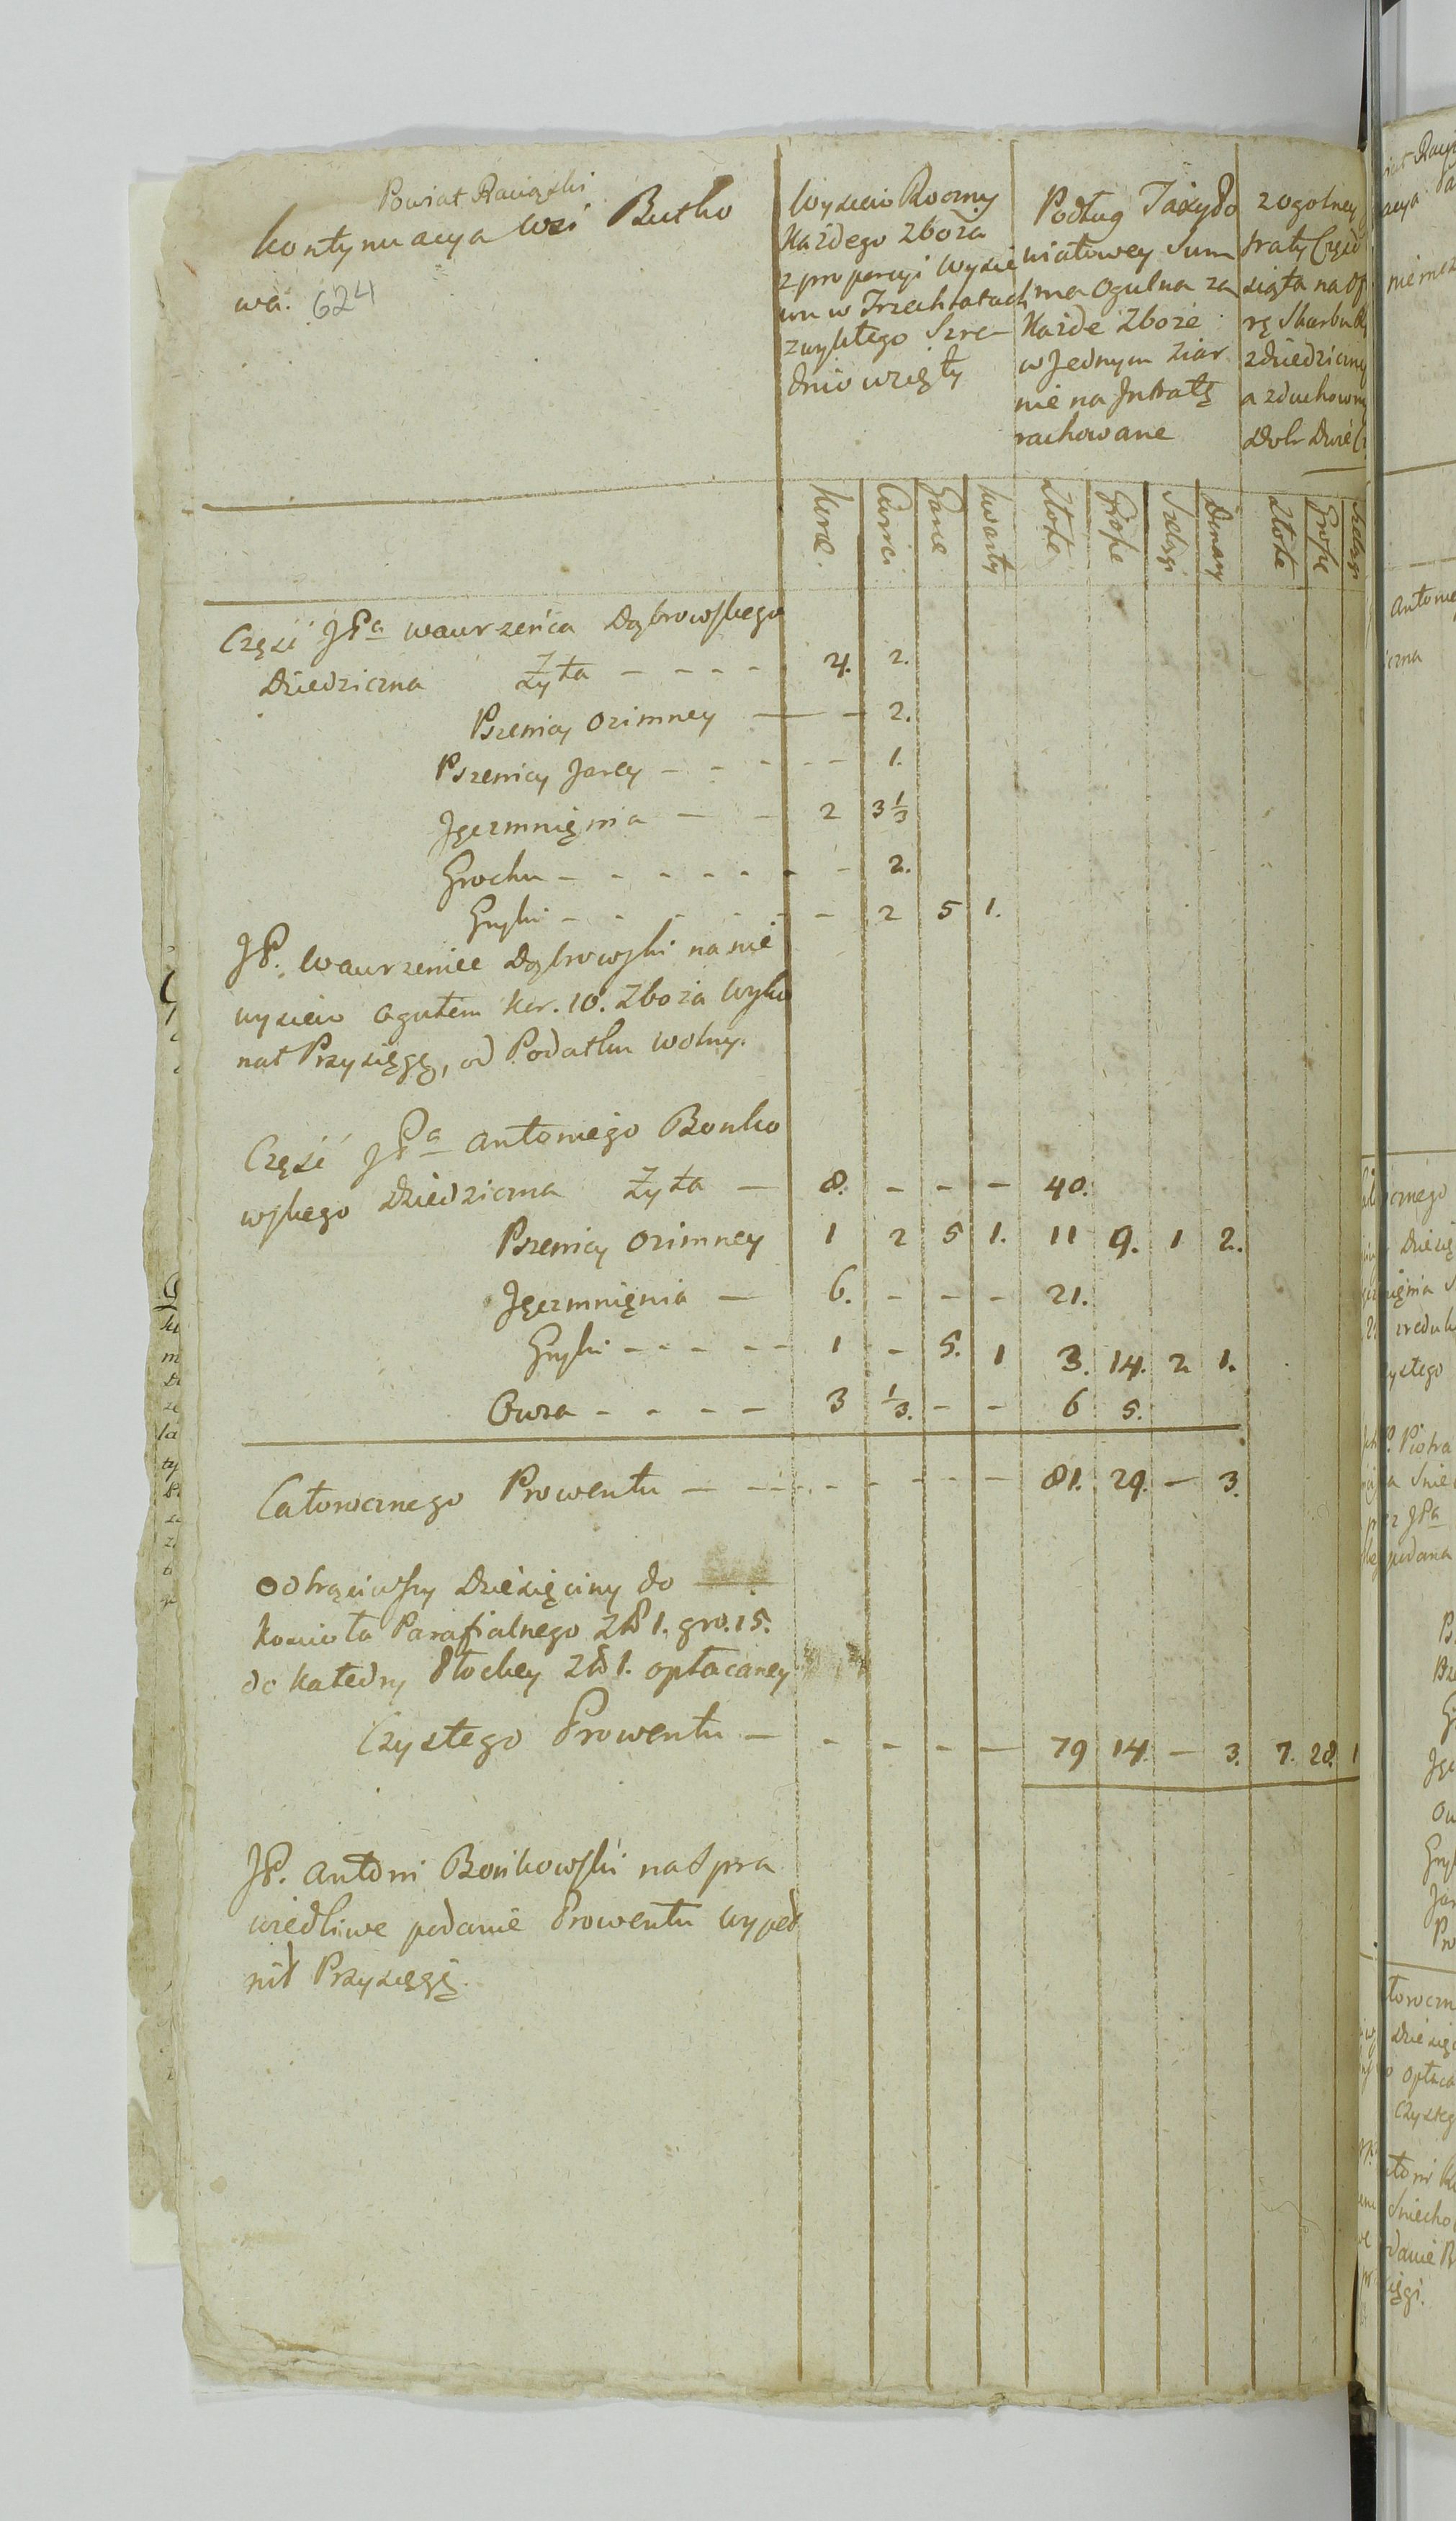 Powiat Raciązki
kontynuacya wsi Butko
wa. 624
Wysiew Roczny
Każdego zboża
z proporcyi wysie
wu w Trzech latach
zwykłego szre-
dnio wzięty
Podług Taxy Po
wiatowey Sum
ma Ogulna za
każde Zboże
w Jednym ziar
nie na Jntratę
rachowane
z ogolney
traty Częśc
siąta na Of
rę Skarbu
z dziedziczny
a z duchowny
Dobr Dwie
Korce.
Cwierci
Garce
kwarty
Złote
Grosze
Szelągi
Denary
Złote
Grosze
Szelągi
Część JPa Wawrzeńca Dąbrowskiego
Dziedziczna Żyta - - - - 4. 2.
Pszenicy Ozimney — - 2.
Pszenicy Jarey - - - - - 1.
Jęczmnięnia - - 2 3 1/3
Grochu - - - - - - - 2.
Gryki - - - - - - 2 5 1.
JP. Wawrzeniec Dąbrowski na nie
wysiew ogułem kor. 10. Zboża wyko
nał Przysięgę, od Podatku wolny.
Część JPa Antoniego Bonko
wskiego Dziedziczna Żyta — 8. - - - 40.
Pszenicy Ozimney 1 2 5 1. 11 9. 1 2.
Jęczmnięnia — 6. - - - 21.
Gryki - - - - - 1 - 5. 1 3. 14. 2 1.
Owsa - - - - 3 1/3. - - 6 5.
Całorocznego Prowentu - - - - - - - - 81. 29. - 3.
Odtrąciwszy Dziesięciny do
kościoła Parafialnego Zł 1. gro. 15.
do Katedry Płockey Zł 1. opłacaney
Czystego Prowentu - - - - - 79 14. - 3. 7. 28. 1
JP. Antoni Bońkowski na Spra
wiedliwe podanie Prowentu wypeł
nił Przysięgę.